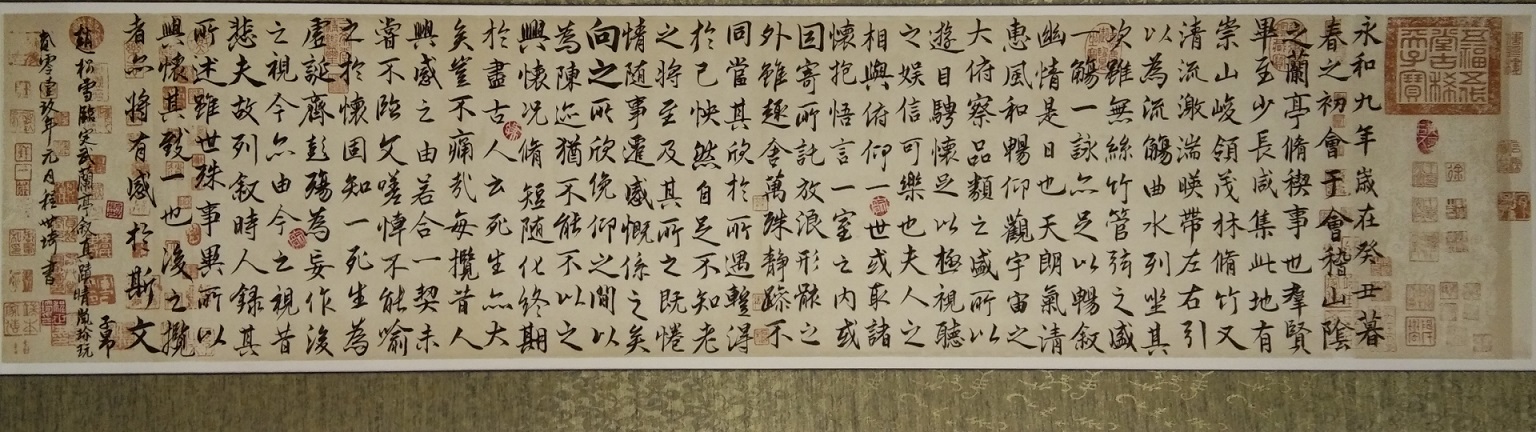 五福五代堂古稀天子寶
永和九年歲在癸丑暮
春之初會于會稽山陰
之蘭亭脩稧事也羣賢
畢至少長咸集此地有
崇山峻領茂林脩竹又
清流激湍暎帶左右引
以為流觴曲水列坐其
次雖無絲竹管弦之盛
一觴一詠亦足以暢叙
幽情是日也天朗氣清
惠風和暢仰觀宇宙之
大俯察品類之盛所以
遊目騁懷足以極視聽
之娛信可樂也夫人之
相與俯仰一世或取諸
懷抱悟言一室之內或
因寄所託放浪形骸之
外雖趣舍萬殊静躁不
同當其欣於所遇蹔得
於己怏然自足不知老
之將至及其所之既惓
情随事遷感慨係之矣
向之所欣俛仰之間以
為陳迹猶不能不以之
興懷況脩短随化終期
於盡古人云死生亦大
矣豈不痛哉每攬昔人
興感之由若合一契未
嘗不臨文嗟悼不能喻
之於懷固知一死生為
虛誕齊彭殤為妄作後
之視今亦由今之視昔
悲夫故列叙時人錄其
所述雖世殊事異所以
興懷其致一也後之攬
者亦將有感於斯文
子昂
趙松雪臨定武蘭亭叙真蹟晴嵐珍玩
貳零壹玖年元月程世書